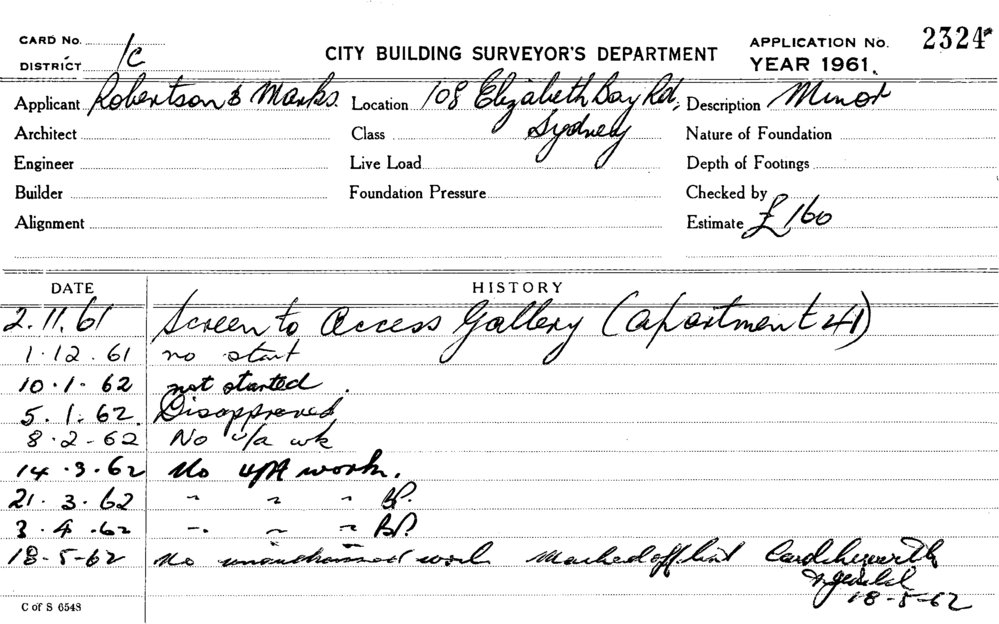 CARD No.
DISTRICT 1C
CITY BUILDING SURVEYOR'S DEPARTMENT
APPLICATION No. 2324
YEAR 1961.
Applicant Robertson & Marks. Location 108 Elizabeth Bay Rd, Sydney Description Minor
Architect Class Nature of Foundation
Engineer Live Load Depth of Footings
Builder Foundation Pressure Checked by
Alignment Estimate £160
DATE HISTORY
2.11.61 Screen to Access Gallery (apartment 41)
1.12.61 no start
10.1.62 not started.
5.1.62. Disapproved
8-2-62 No u/a wk
14.3.62 No u/A work.
21.3.62 " " " BP.
3.4.62 " " " BP.
18-5-62 No unauthorised work Marked off list Card herewith
18-5-62
C of S 6548